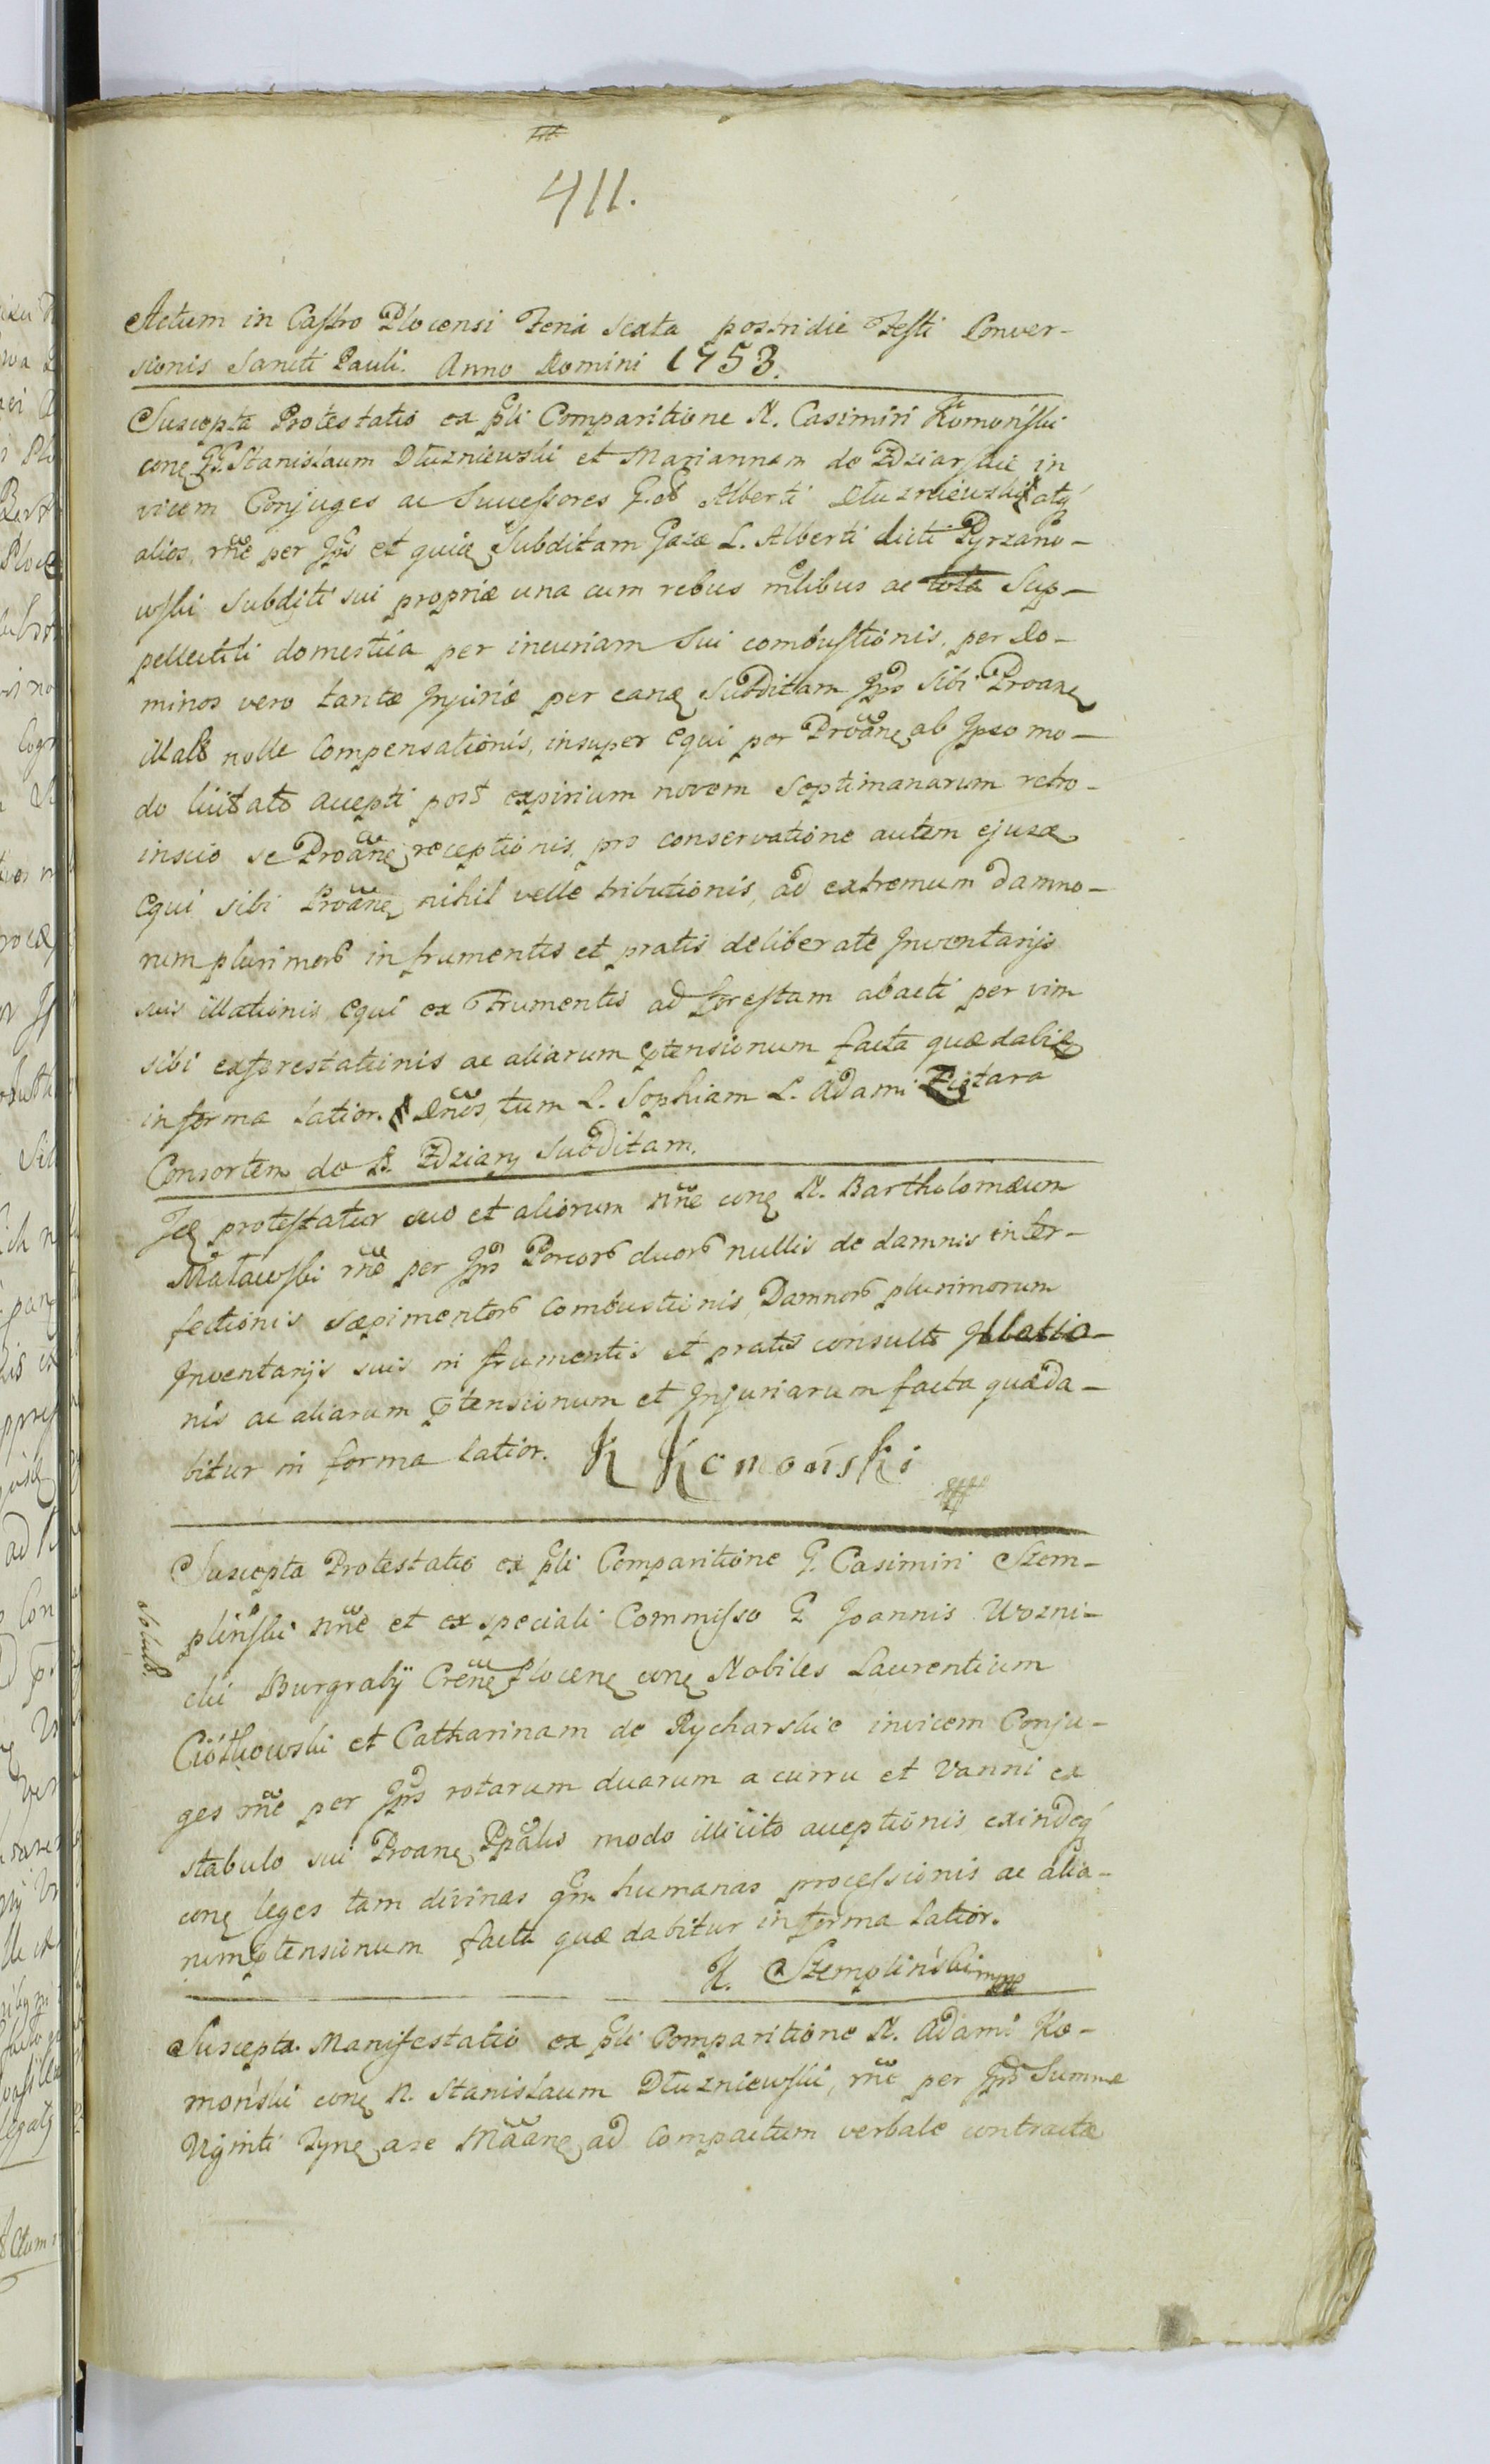 411.
Actum in Castro Plocensi Feria sexta postridie Festi Conver-
sionis Sancti Pauli. Anno Domini 1753.
Suscepta Protestatio ex pli Comparitione N. Casimiri Komoński
conę GG. Stanisłaum Dłużniewski et Mariannam de Zdziarskie in
vicem Conjuges ac Successores G. Alberti Dłużniewski atq
alios, rñe per Ipos et quia Subditam L. Alberti dicti Pyrzano-
wski Subditi sui propriæ una cum rebus mlibus ac tota Sup-
pellectili domestica per incuriam sui combustionis, per Do-
minos vero tantæ Injuriæ per eanę Subditam Ipso sibi Proanę
illatæ nolle Compensationis, insuper Equi per Proanę ab Ipso mo-
do licitato accepti post expirium novem Septimanarum retro-
inscio se Proanę receptionis, pro conservatione autem ejusę
Equi sibi Proanę nihil velle tributionis, ad extremum damno-
rum plurimorũ in frumentis et pratis deliberate Inventarijs
suis illationis Equi ex Frumentis ad forestam abacti per vim
sibi exforestationis ac aliarum ptensionum facta quæ dabitę
in forma latior. Dnos, tum L. Sophiam L. Adami
Consortem de B. Zdziary Subditam.
Idę protestatur suo et aliorum nñe conę N. Bartholomæum
Małowski rñe per Ipm Porcorũ duorũ nullis de damnis inter-
fectionis sæpimentorũ combustionis, Damnorũ plurimorum
Inventarijs suis in frumentis et pratis consulto Illatio-
nis ac aliarum ptensionum et Injuriarum facta quæ da-
bitur in forma latior. K Komoński
Suscepta Protestatio ex pli Comparitione G. Casimiri Szem-
pliński nñe et ex speciali Commisso G Joannis Wozni-
cki Burgrabÿ Crenę Plocenę conę Nobiles Laurentium
oblat.
Ciółkowski et Catharinam de Rycharskie invicem Conju-
ges rñe per Ipos rotarum duarum a curru et Vanni ex
stabulo sui Proanę Ppalis modo illicito acceptionis, exindeq
conę leges tam divinas qm humanas processionis ac alia-
rum ptensionum facta quæ dabitur in forma latior.
K. Szempliński mpp
Suscepta Manifestatio ex pli Comparitione N. Adami Ko-
moński conę N. Stanisłaum Dłużniewski, rñe per Ipm Summæ
Viginti Tynę a se Maanę ad Compactum verbale contractæ